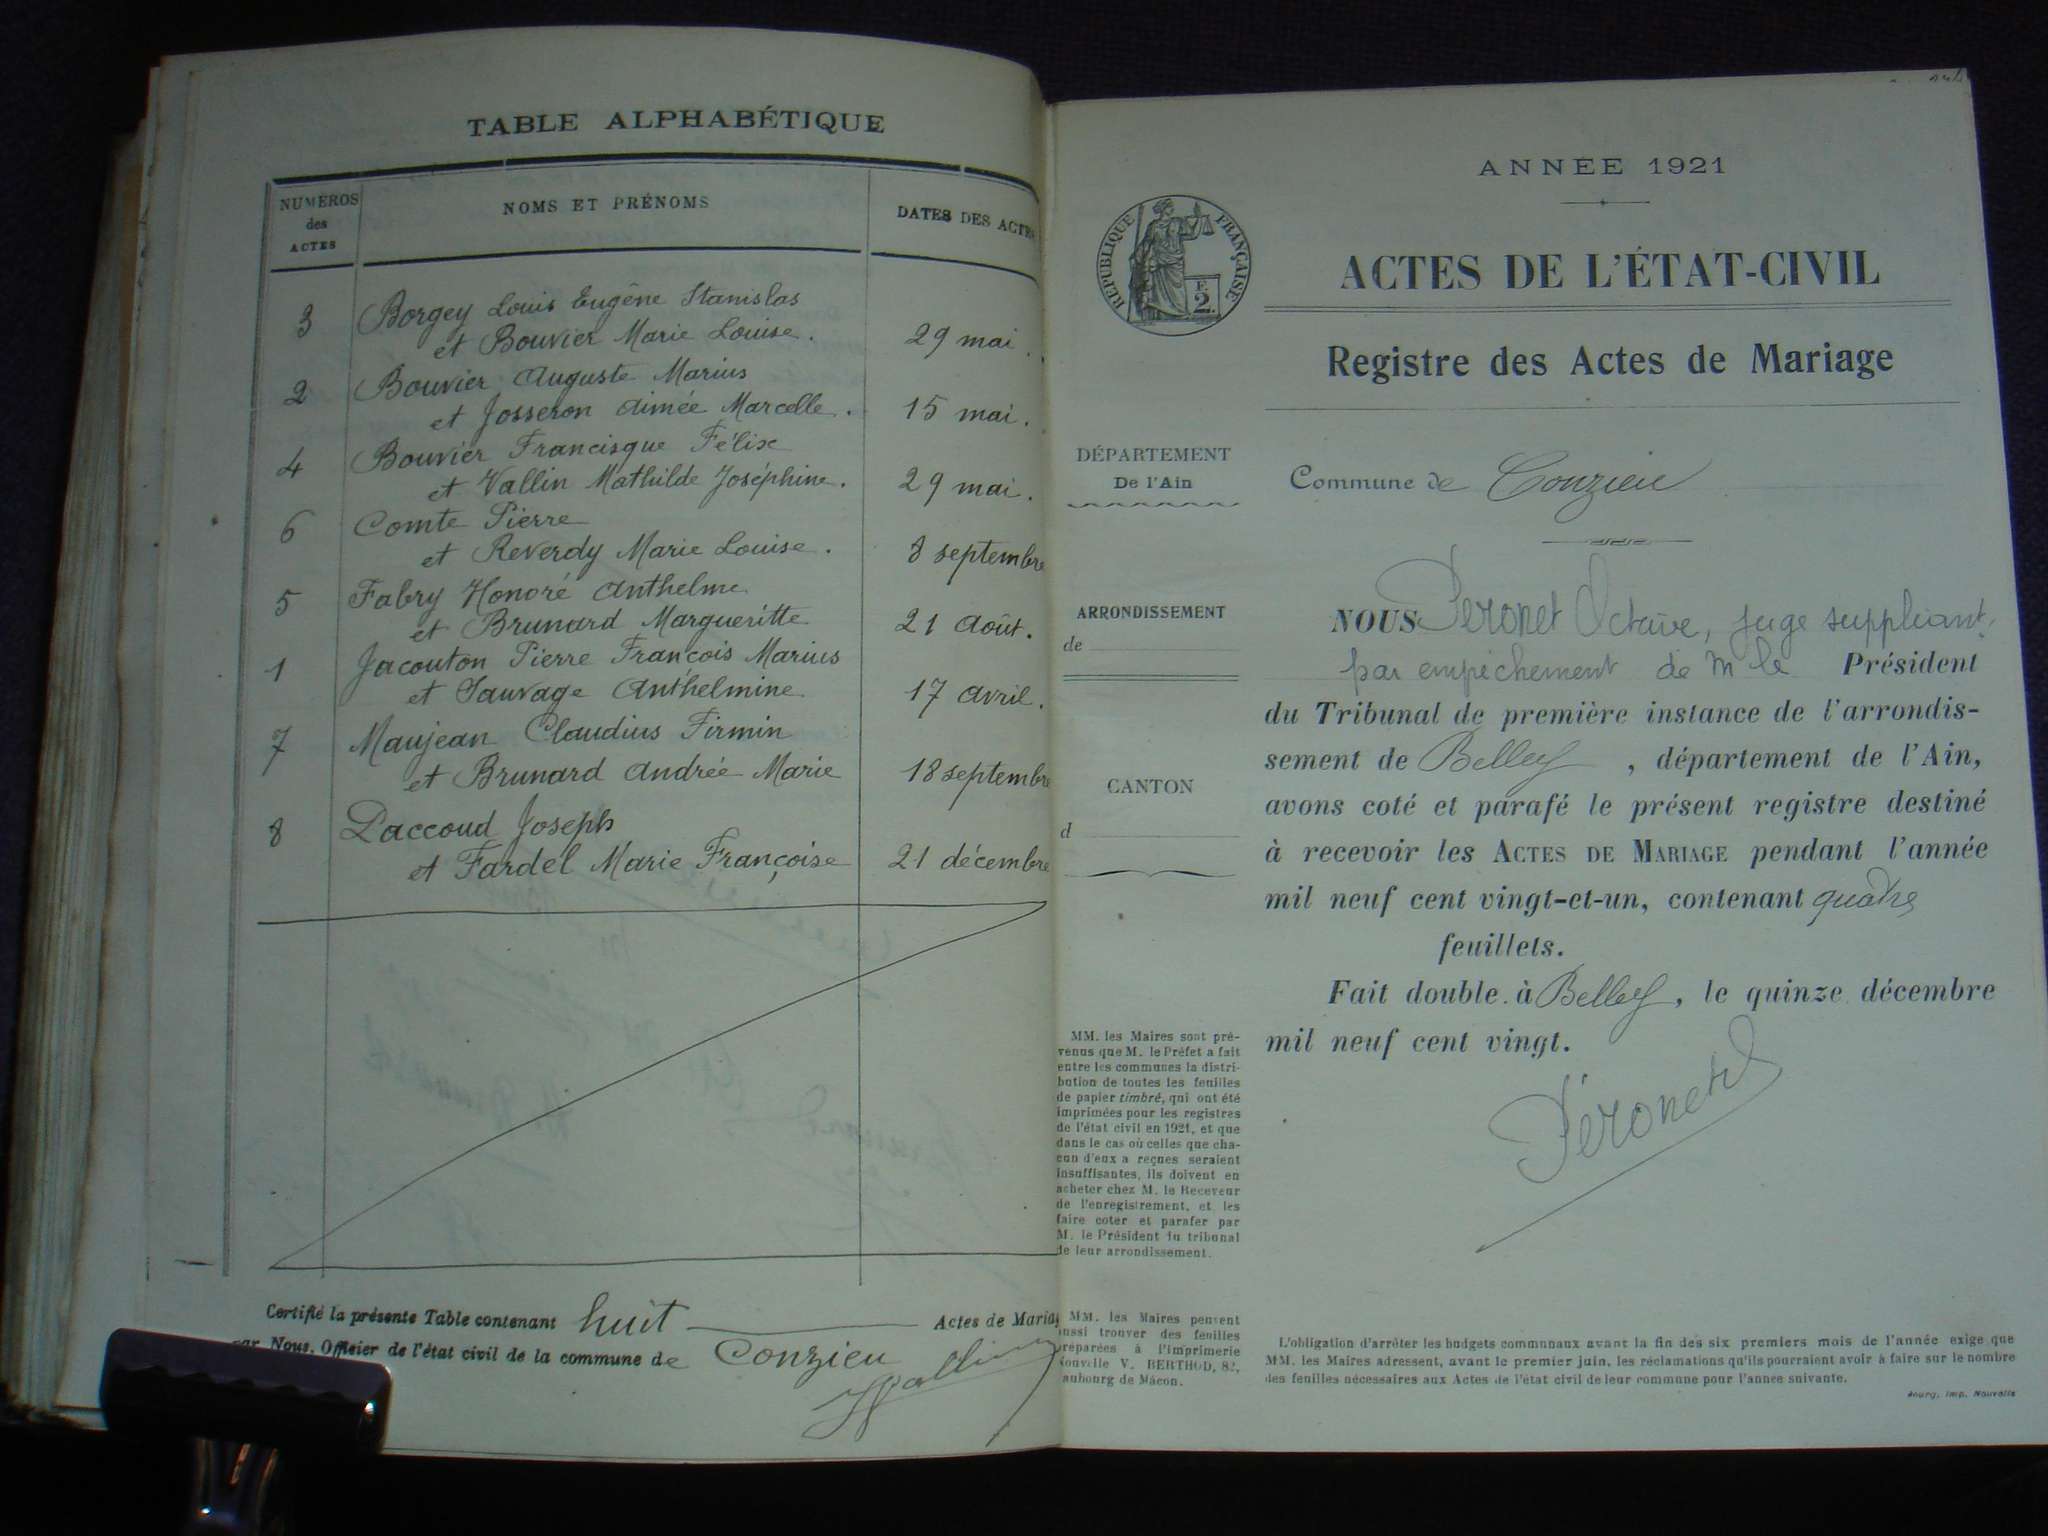 TABLE ALPHABÉTIQUE
NUMÉROS
des
ACTES
NOMS ET PRÉNOMS
DATES DES ACTES
3 Borgey Louis Eugène Stanislas
et Bouvier Marie Louise. 29 mai.
2 Bouvier Auguste Marius
et Josseron Aimée Marcelle. 15 mai.
4 Bouvier Francisque Félix
et Vallin Mathilde Joséphine. 29 mai.
6 Comte Pierre
et Reverdy Marie Louise. 8 septembre
5 Fabry Honoré Anthelme
et Brunard Margueritte 21 Août.
1 Jacouton Pierre François Marius
et Sauvage Anthelmine 17 avril.
7 Maujean Claudius Firmin
et Brunard Andrée Marie 18 septembre
8 Paccoud Joseph
et Fardel Marie Françoise 21 décembre
Certifié la présente Table contenant huit Actes de Mariag
par Nous, Officier de l'état civil de la commune de Conzieu
ANNÉE 1921
RÉPUBLIQUE FRANÇAISE
F.
2.
ACTES DE L'ÉTAT-CIVIL
Registre des Actes de Mariage
DÉPARTEMENT
De l'Ain
Commune de Conzieu
ARRONDISSEMENT
de
CANTON
d
NOUS Péronet Octave, juge suppléant,
par empêchement de M le Président
du Tribunal de première instance de l'arrondis-
sement de Belley, département de l'Ain,
avons coté et parafé le présent registre destiné
à recevoir les ACTES DE MARIAGE pendant l'année
mil neuf cent vingt-et-un, contenant quatre
feuillets.
Fait double à Belley, le quinze décembre
mil neuf cent vingt.
Péronet
MM. les Maires sont pré-
venus que M. le Préfet a fait
entre les communes la distri-
bution de toutes les feuilles
de papier timbré, qui ont été
imprimées pour les registres
de l'état civil en 1921, et que
dans le cas où celles que cha-
cun d'eux a reçues seraient
insuffisantes, ils doivent en
acheter chez M. le Receveur
de l'enregistrement, et les
faire coter et parafer par
M. le Président du tribunal
de leur arrondissement.
MM. les Maires peuvent
aussi trouver des feuilles
préparées à l'imprimerie
Nouvelle V. BERTHOD, 82,
faubourg de Mâcon.
L'obligation d'arrêter les budgets communaux avant la fin des six premiers mois de l'année exige que
MM. les Maires adressent, avant le premier juin, les réclamations qu'ils pourraient avoir à faire sur le nombre
des feuilles nécessaires aux Actes de l'état civil de leur commune pour l'année suivante.
Bourg, Imp. Nouvelle